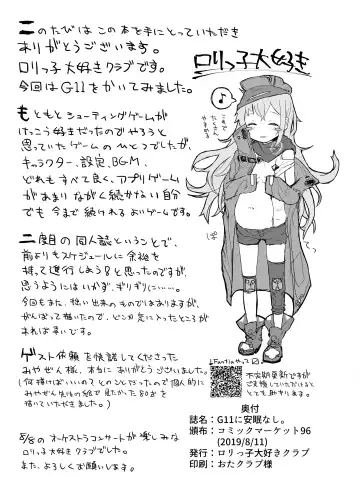 このたびは この本を手にとっていただき
ありがとうございます。
ロリっ子大好きクラブです。
今回はG11をかいてみました。
もともとシューティングゲームが
けっこう好きだったのでやろうと
思っていたゲームのひとつでしたが、
キャラクター、設定、BGM、
どれもすべて良く、アプリゲーム
があまりながく続かない自分
でも 今まで続けれるよいゲームです。
二度目の同人誌ということで、
前よりもスケジュールに余裕を
持って進行しようと思ったのですが、
思うようにはいかず、ギリギリに……。
今回もまた、拙い出来のものではありますが、
がんばって描いたので、ピンポに入ったところが
あれば幸いです。
ゲスト依頼を快諾してくださった
みやぜん様、本当にありがとうございました。
(何描けばいいの？とのことだったので個人的に
みやぜん先生の絵で見たかった
描いていただきました。)
5/8のオーケストラコンサートが楽しみな
ロリっ子大好きクラブでした。
また、よろしくお願いします。
ロリっ子大好き
♪
これで
たくさん
やすめる
ぱ
てっ
↓Fantiaやってる
不定期更新ですが
ご支援していただけると
とても助かります。
奥付
誌名：G11に安眠なし。
頒布：コミックマーケット96
(2019/8/11)
発行：ロリっ子大好きクラブ
印刷：おたクラブ様